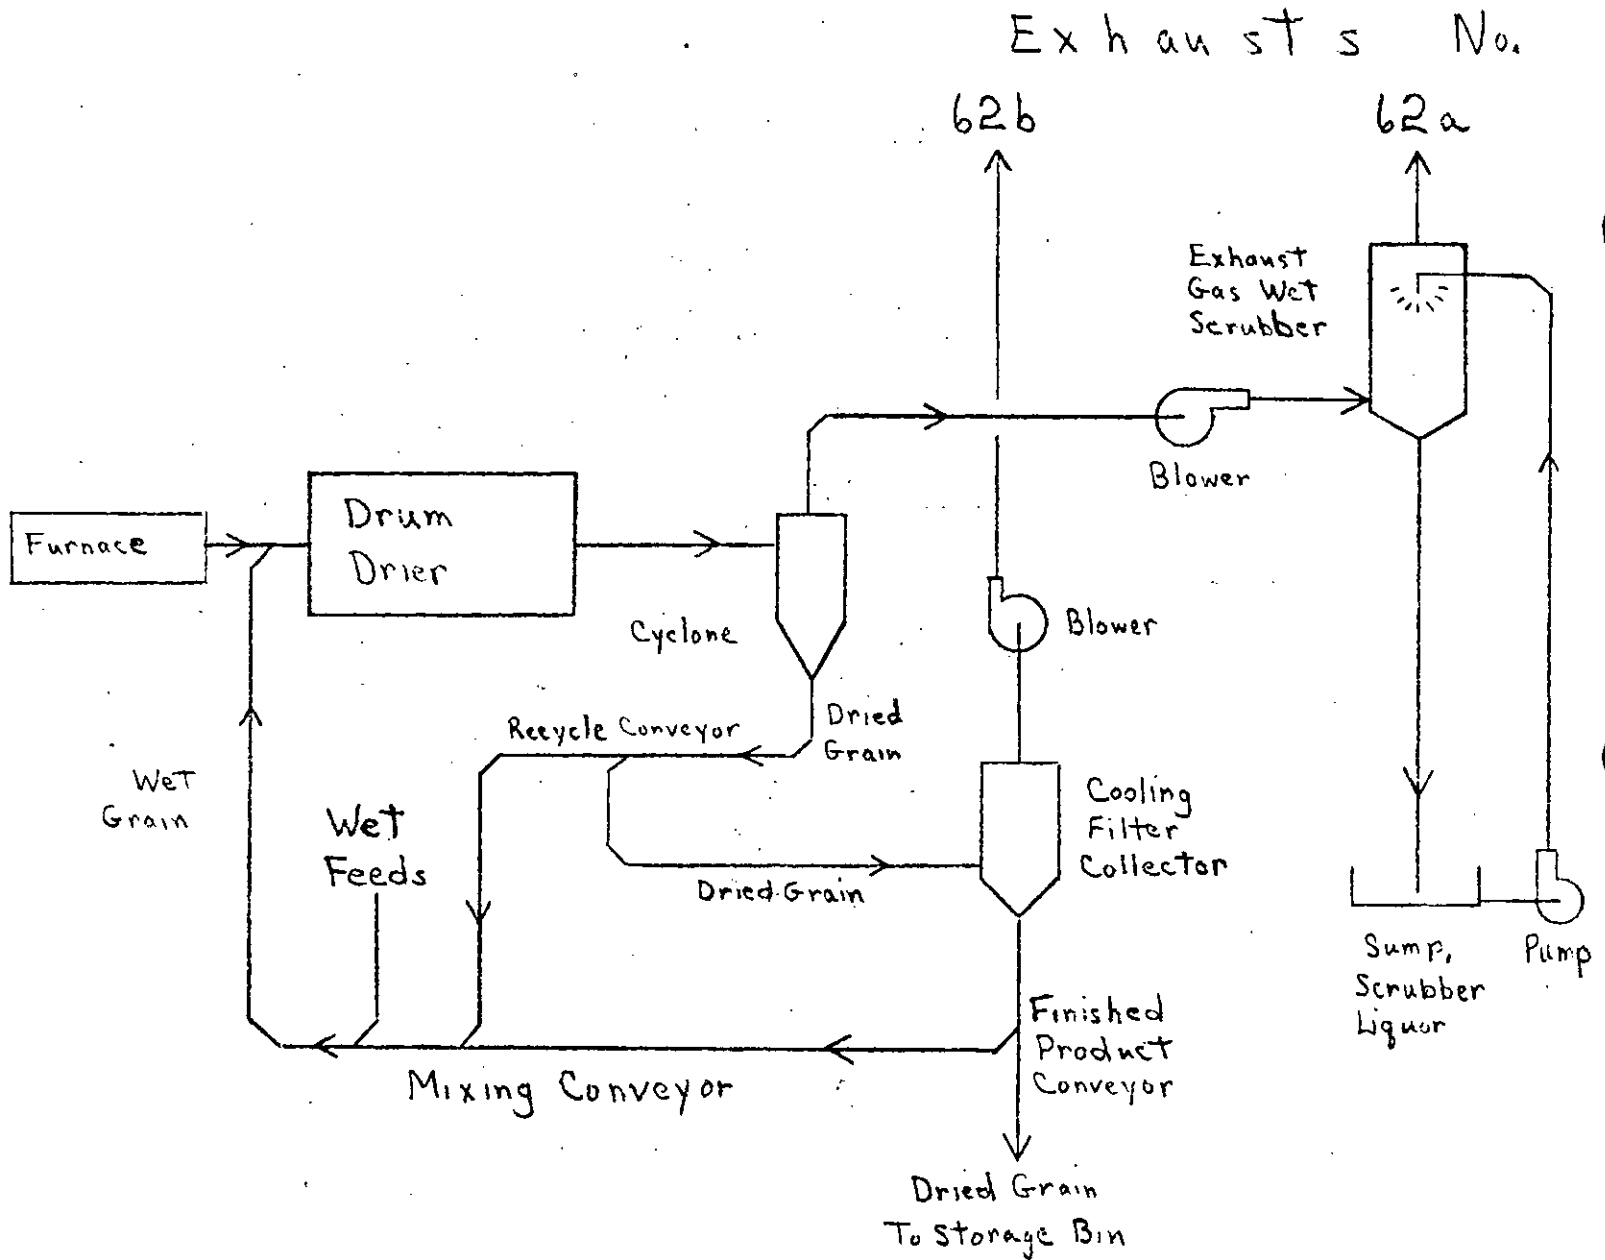 Exhausts No.
62b
62a
Exhaust
Gas Wet
Scrubber
Blower
Furnace
Drum
Drier
Cyclone
Blower
Recycle Conveyor
Dried
Grain
Wet
Grain
Wet
Feeds
Dried Grain
Cooling
Filter
Collector
Sump,
Scrubber
Liquor
Pump
Finished
Product
Conveyor
Mixing Conveyor
Dried Grain
To Storage Bin